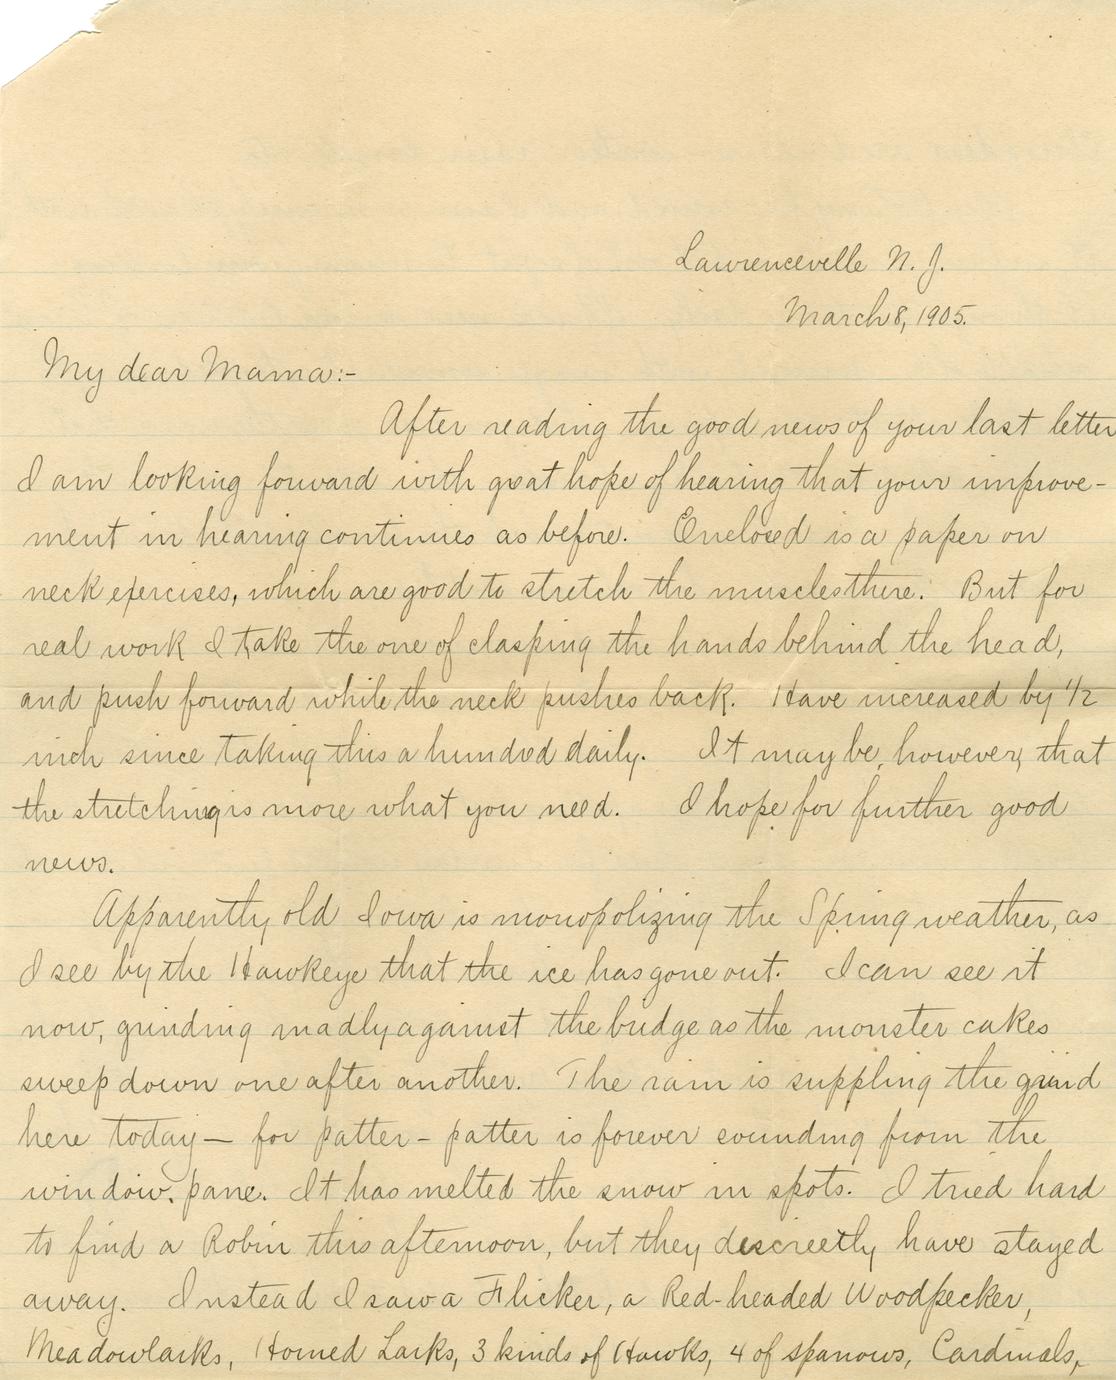 Lawrenceville N. J.
March 8, 1905.
My dear Mama:-
After reading the good news of your last letter
I am looking forward with great hope of hearing that your improve-
ment in hearing continues as before. Enclosed is a paper on
neck exercises, which are good to stretch the muscles there. But for
real work I take the one of clasping the hands behind the head,
and push forward while the neck pushes back. Have increased by 1/2
inch since taking this a hundred daily. It may be, however, that
the stretching is more what you need. I hope for further good
news.
Apparently old Iowa is monopolizing the Spring weather, as
I see by the Hawkeye that the ice has gone out. I can see it
now, grinding madly against the bridge as the monster cakes
sweep down one after another. The rain is suppling the grind
here today — for patter - patter is forever sounding from the
window pane. It has melted the snow in spots. I tried hard
to find a Robin this afternoon, but they discreetly have stayed
away. Instead I saw a Flicker, a Red-headed Woodpecker,
Meadowlarks, Horned Larks, 3 kinds of Hawks, 4 of sparrows, Cardinals,